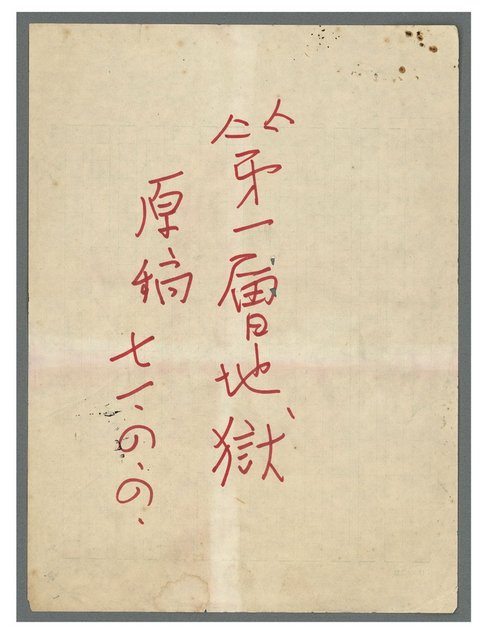 第一層地獄
原稿 七一.の.の.